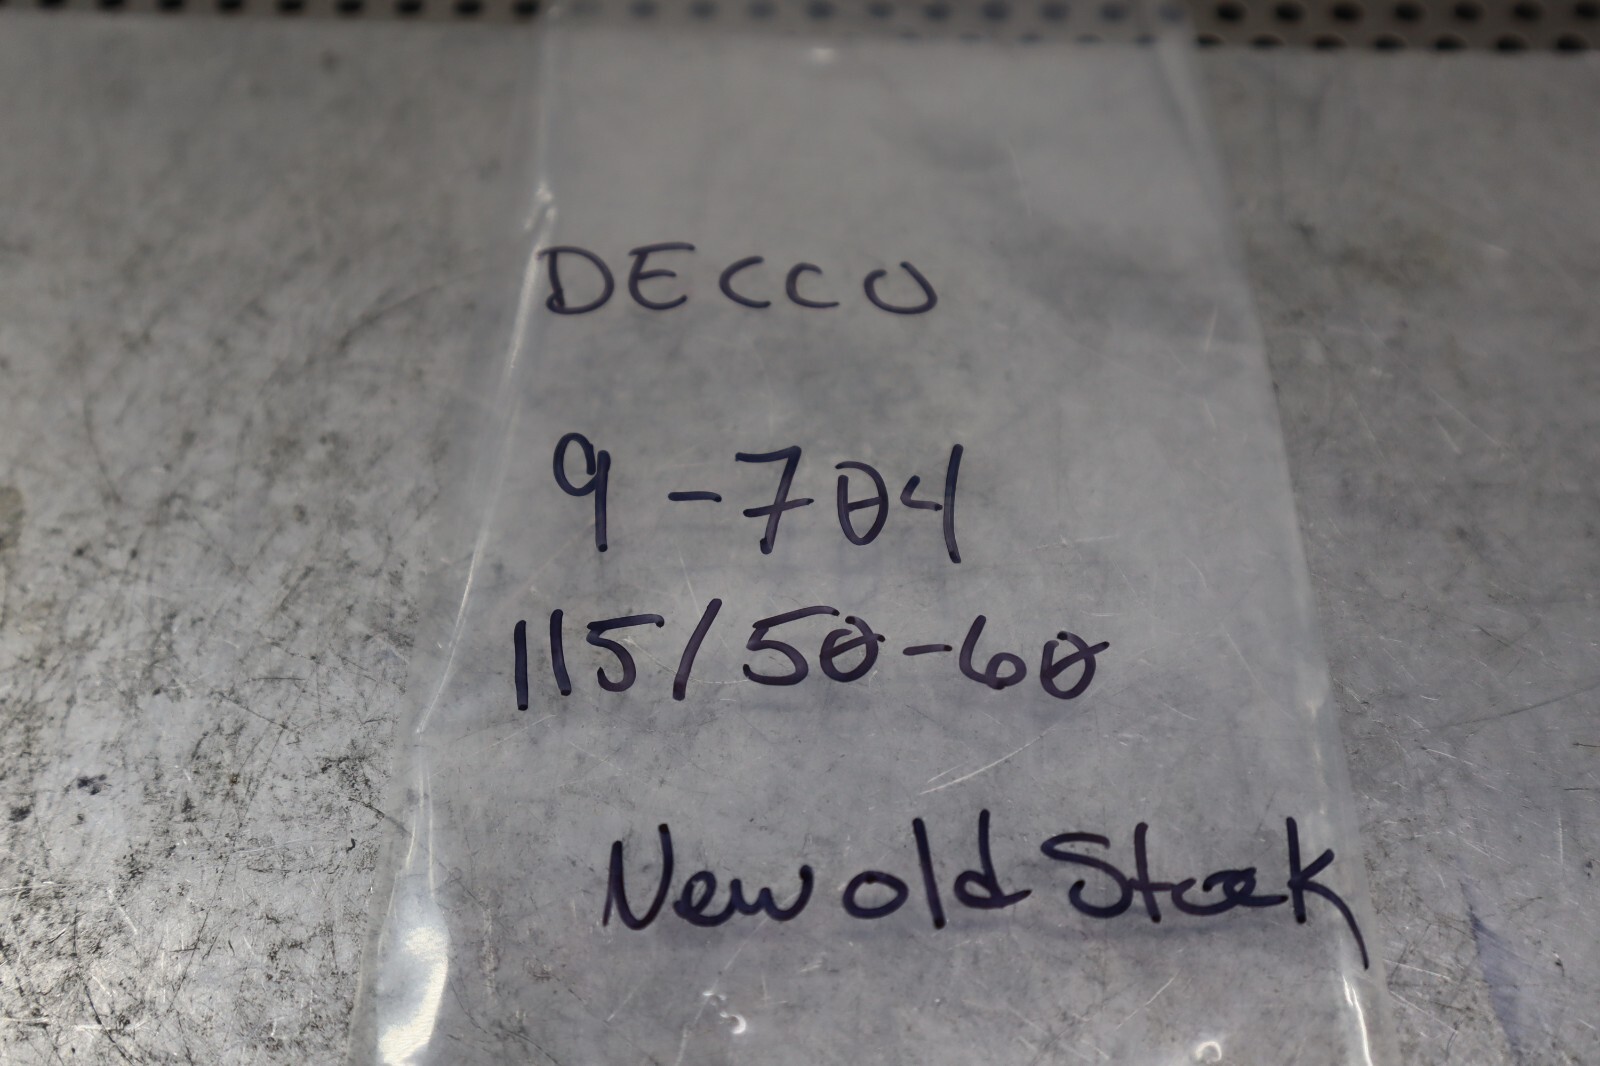 DECCO
9-704
115/50-60
New old Stock